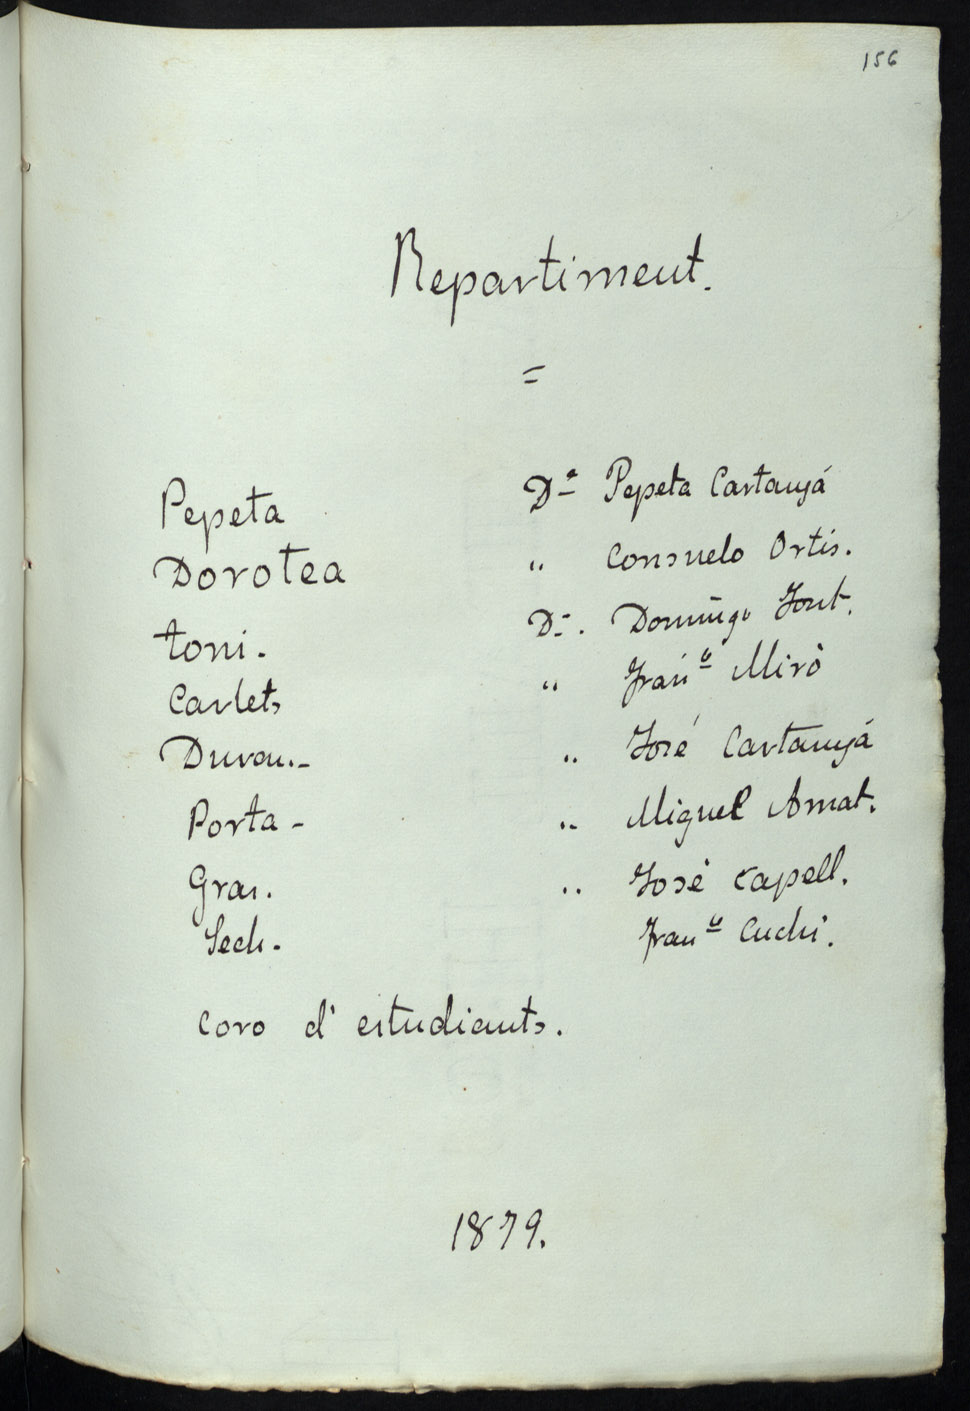 156
Repartiment.
=
Pepeta Dª Pepeta Cartanyá
Dorotea " Consuelo Ortis.
toni. Dn. Domingo Font.
Carlets " Franco Miró
Duran.- " José Cartanyá
Porta - " Miguel Amat.
Grau. " José Capell.
Sech. Franco Cuchi.
Coro d' estudiants.
1879.